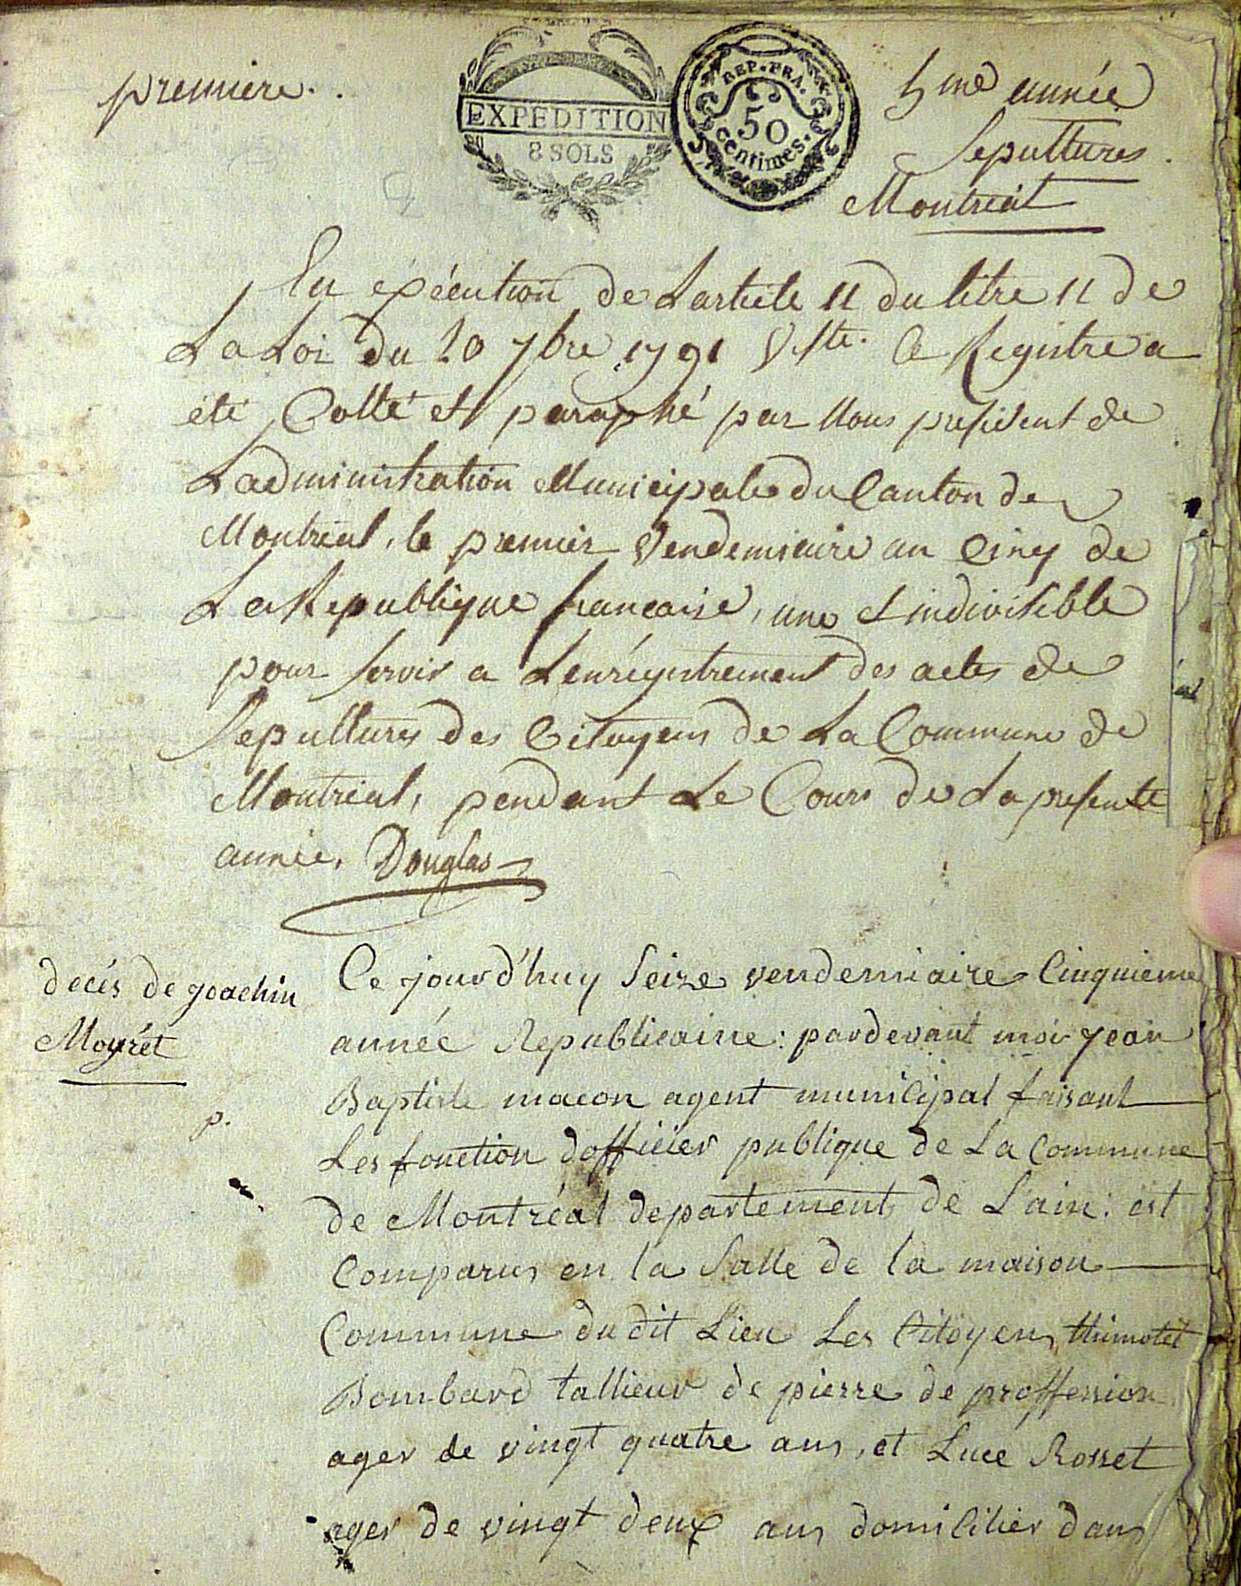 premiere.
EXPEDITION
8 SOLS
REP. FRA.
50
centimes.
5me année
Sepultures
Montreal
En exécution de Larticle 11 du titre 11 de
La Loi du 20 7bre 1791 V. Ste. Ce Registre a
été Cotté et paraphé par Nous president de
Ladministration Municipale du Canton de
Montreal, le premier Vendemiaire an Cinq de
La Republique francaise, une et indivisible
pour servir a Lenrégistrement des actes de
Sepultures des Citoyens de La Commune de
Montreal, pendant Le Cours de La presente
année. Douglas
decés de joachin
Moyrét
p.
Ce jourd'huy Seize vendemiaire Cinquieme
année Republicaine: pardevant moi jean
Baptiste macon agent municipal faisant
Les fonction dofficier publique de La Commune
de Montréal departement de Lain: est
Comparus en la Salle de la maison
Commune du dit Lieu Les Citoyens thimotét
Bombard tallieur de pierre de proffession
ager de vingt quatre ans, et Luce Rosset
ager de vingt deux ans domicilier dans